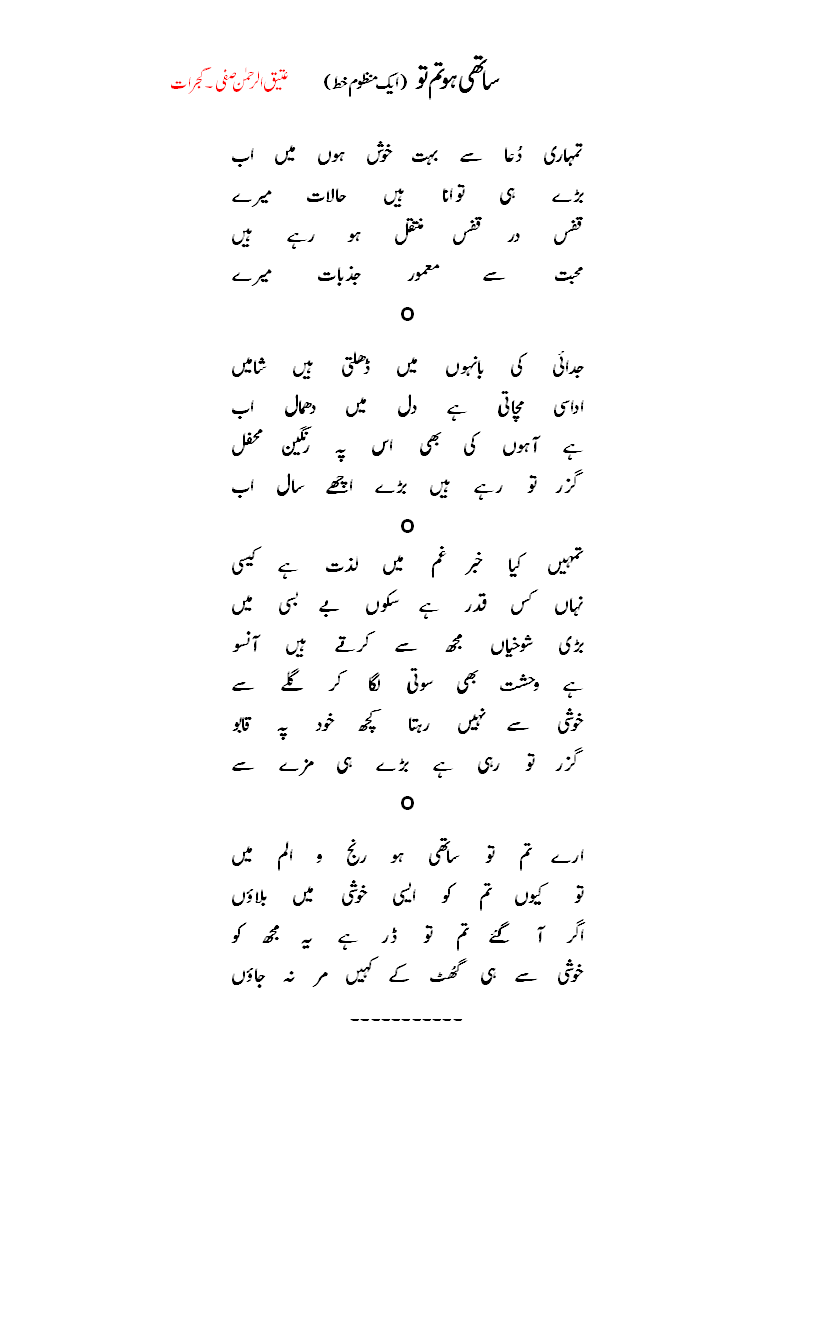 ساتھی ہو تم تو (ایک منظوم خط) عتیق الرحمٰن صفی ۔ گجرات
تمہاری دُعا سے بہت خوش ہوں میں اب
بڑے ہی توانا ہیں حالات میرے
قفس در قفس منتقل ہو رہے ہیں
محبت سے معمور جذبات میرے
O
جدائی کی بانہوں میں ڈھلتی ہیں شامیں
اداسی مچاتی ہے دل میں دھمال اب
ہے آہوں کی بھی اس پہ رنگین محفل
گزر تو رہے ہیں بڑے اچھے سال اب
O
تمہیں کیا خبر غم میں لذت ہے کیسی
نہاں کس قدر ہے سکوں بے بسی میں
بڑی شوخیاں مجھ سے کرتے ہیں آنسو
ہے وحشت بھی سوتی لگا کر گلے سے
خوشی سے نہیں رہتا کچھ خود پہ قابو
گزر تو رہی ہے بڑے ہی مزے سے
O
ارے تم تو ساتھی ہو رنج و الم میں
تو کیوں تم کو ایسی خوشی میں بلاؤں
اگر آ گئے تم تو ڈر ہے یہ مجھ کو
خوشی سے ہی گھُٹ کے کہیں مر نہ جاؤں
-----------